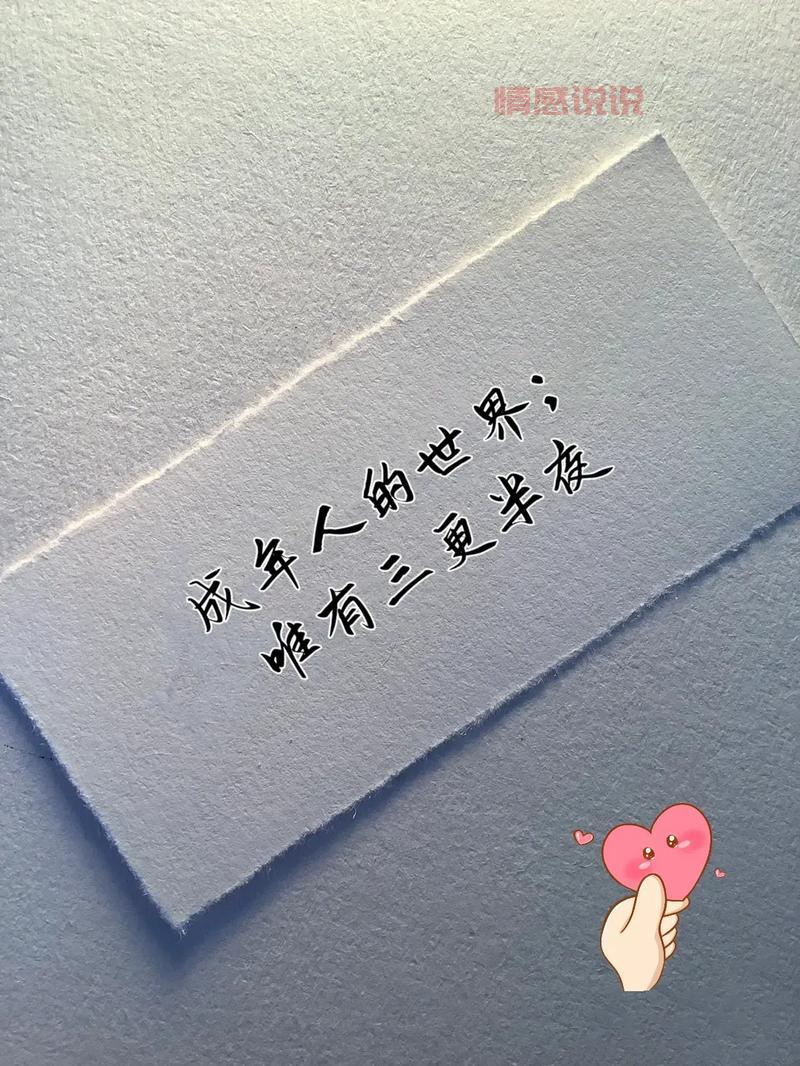 情感说说
成年人的世界；
唯有三更半夜